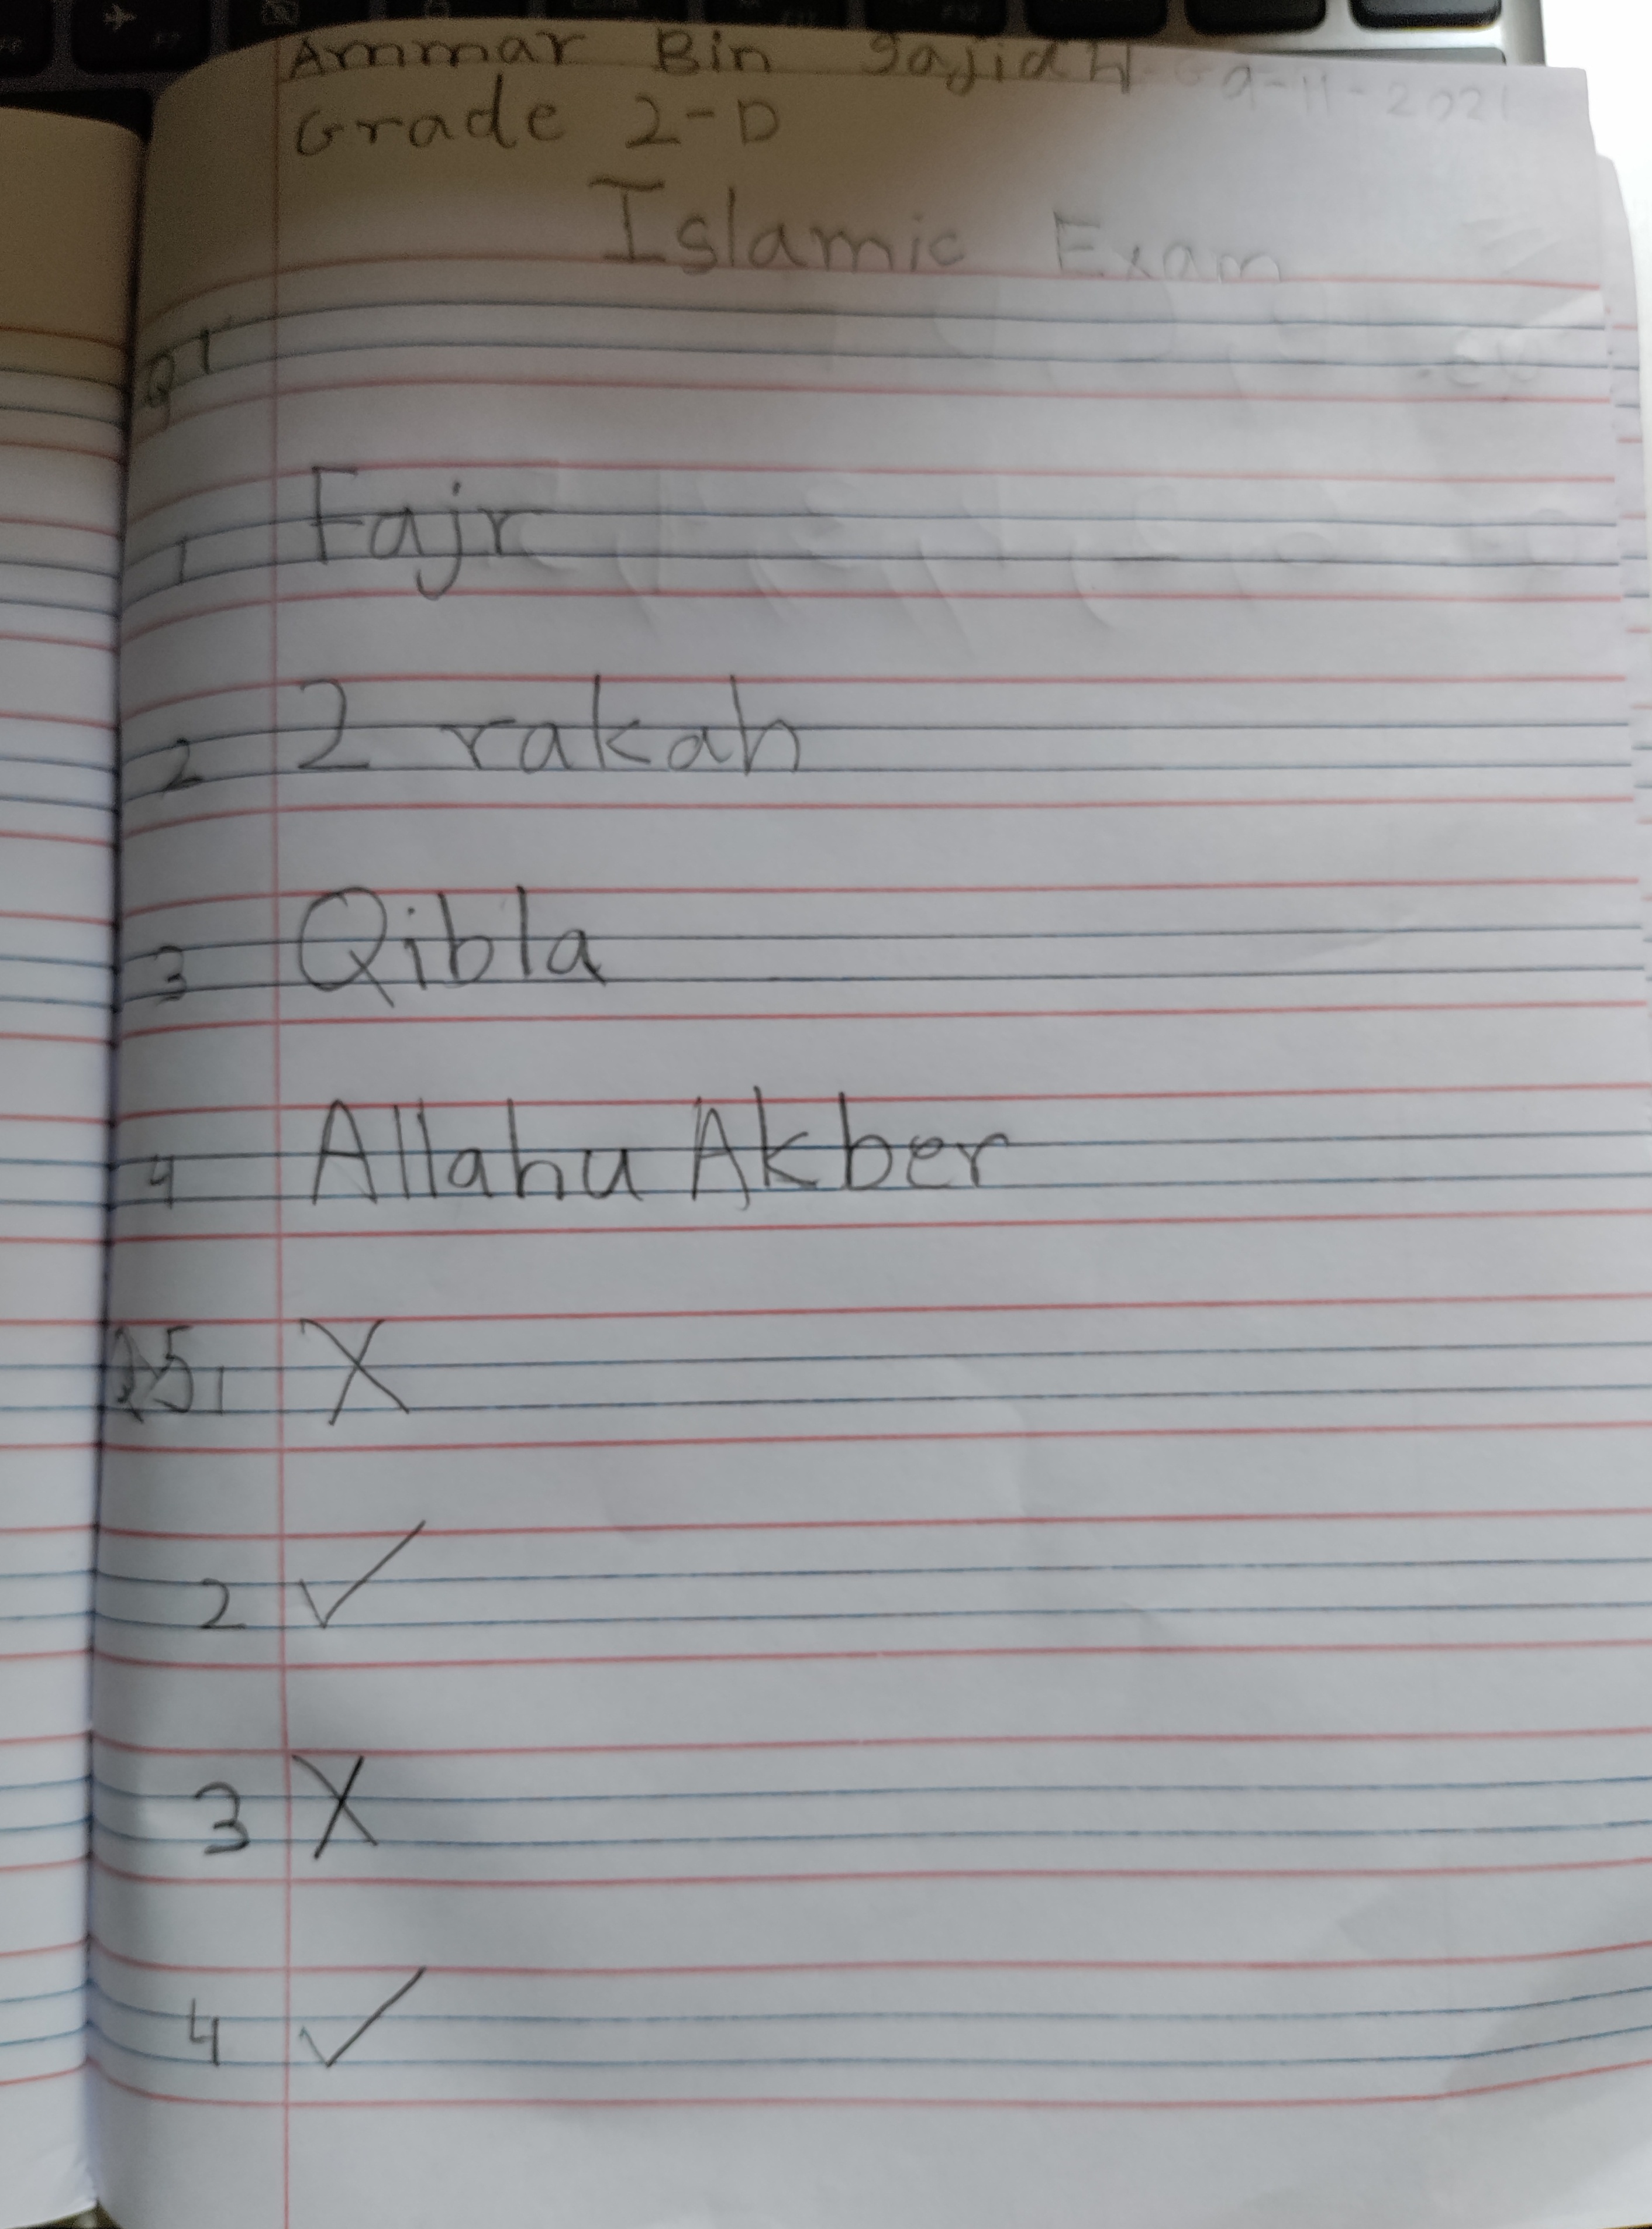 Ammar Bin Sajid H. G 9-11-2021
Grade 2-D
Islamic Exam
Q1
1 Fajr
2 2 rakah
3 Qibla
4 Allahu Akber
Q5, X
2 ✓
3 X
4 ✓